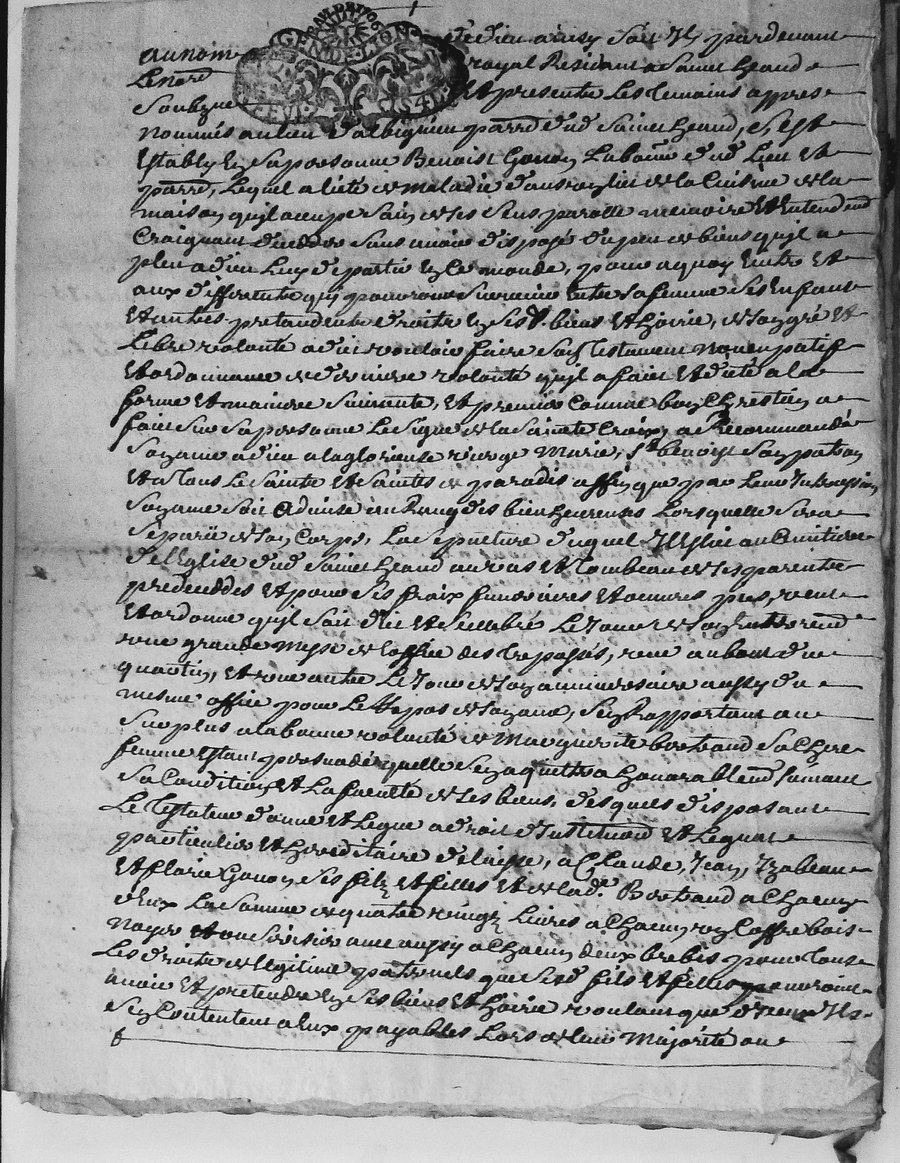 GEN DE LYON
au nom de Dieu ainsy soit Il, pardevant
le no.re royal Residant a Saint heand
Soubzné Et presente les temoins appres
nommés au lieu d'albigneu parr.e dud Saint heand, s'est
Estably En sa personne Benoist Gonon laboureur dud lieu Et
parr.e, lequel alité de maladie dans un lict de la Cuisine de la
maison qu'il occupe sain de ses sens parolle memoire Et Entendem.t
Craignant decedder sans avoir disposé du peu de biens qu'il a
pleu a dieu luy departir En ce monde, pour a quoy Eviter Et
aux differents qui pourroient survenir Entre sa femme ses Enfants
Et autres pretendants droits En ses d. biens Et hoirie, de son gré Et
libre volonté a dit vouloir faire son testament noncupatif
Et ordonnance de derniere volonté qu'il a fait Et dicté a la
forme Et maniere suivante, Et premier Comme bon Chrestien a
fait sur sa personne le signe de la Sainte Croix, a Recommandé
son ame a dieu a la glorieuse vierge Marie, St benoist son patron
Et a tous les Saints Et Saintes de paradis affin que par leurs Intercessions
son ame soit admise au Rang des bien heureux lorsquelle sera
Separée de son Corps, la sepulture duquel Il Eslit au Cimetiere
de l'Eglise dud Saint heand au vas Et tombeau de ses parents
predeceddés Et pour ses fraix funeraires Et œuvres pies, veut
Et ordonne qu'il soit dit Et Cellebré le jour de son Enterrem.t
une grande Messe de l'office des trepassés, une au bout d'une
quarantaine, Et une autre le jour de son anniversaire aussy du
mesme office pour le Repos de son ame, s'en Rapportant au
surplus a la bonne volonté de Marguerite bertrand sa Chere
femme Estant persuadé quelle s'en aquittera honnorablem.t suivant
sa Condition Et la faculté de ses biens, desquels disposant
le testateur donne Et legue a droit d'Institution Et legat
particulier Et hereditaire delaisse, a Claude, Jean, Izabeau
Et florie Gonon ses filz Et filles Et de lad.e Bertrand a Chacun
d'eux la somme de quatre vingt livres a Chacun, un Coffre bois
noyer Et une aussy a Chacun deux brebis pour tous
les droits de legitime paternels que sesd fils Et filles pourroient
avoir Et pretendre En ses biens Et hoirie voulant que d'iceux Ils
s'en Contentent a Eux payables lors de leur Majorité ou